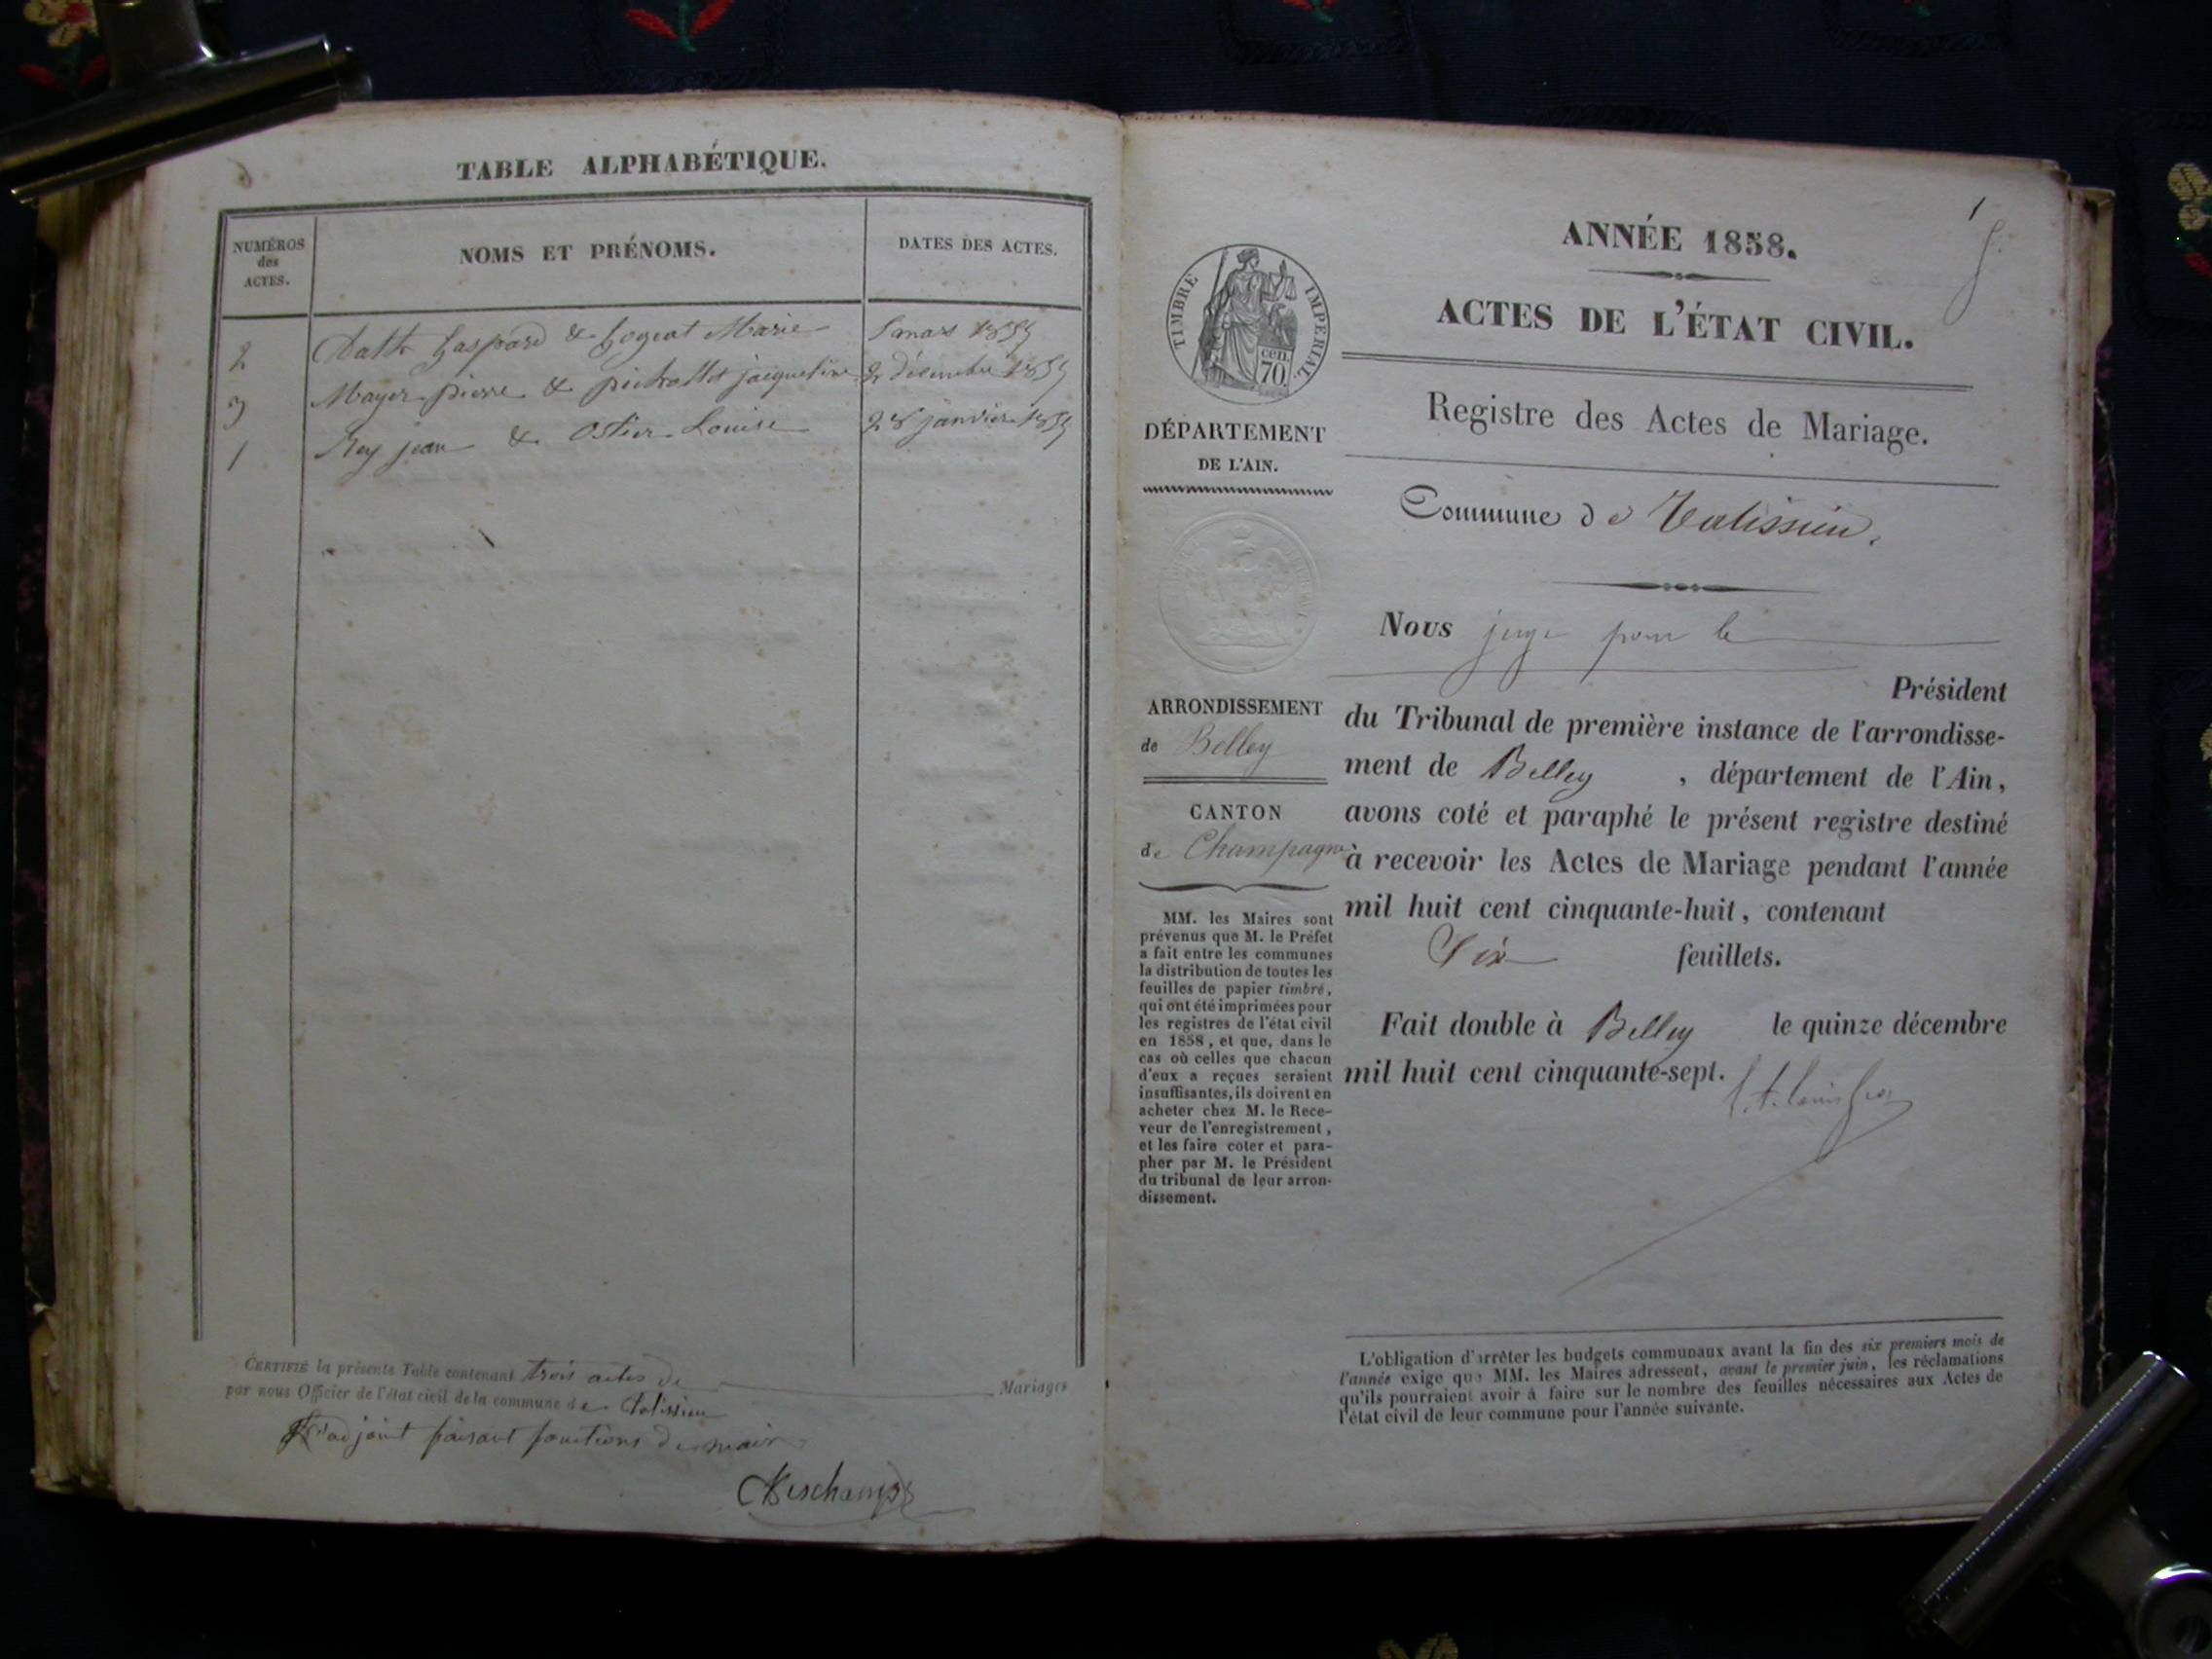 TABLE ALPHABÉTIQUE.
NUMÉROS
des
ACTES.
NOMS ET PRÉNOMS.
DATES DES ACTES.
2 Gaspard & Marie mars
3 Mayer pierre & jacqueline 2 décembre
1 Rey jean & Ostier Louise 28 janvier
CERTIFIÉ la présente Table contenant trois actes de Mariages
par nous Officier de l'état civil de la commune de Talissieu
L'adjoint faisant fonctions de maire
Deschamps
1
ANNÉE 1858.
ACTES DE L'ÉTAT CIVIL.
Registre des Actes de Mariage.
Commune de Talissieu.
TIMBRE IMPÉRIAL.
cen.
70.
DÉPARTEMENT
DE L'AIN.
ARRONDISSEMENT
de Belley
CANTON
de Champagne
MM. les Maires sont
prévenus que M. le Préfet
a fait entre les communes
la distribution de toutes les
feuilles de papier timbré,
qui ont été imprimées pour
les registres de l'état civil
en 1858, et que, dans le
cas où celles que chacun
d'eux a reçues seraient
insuffisantes, ils doivent en
acheter chez M. le Rece-
veur de l'enregistrement,
et les faire coter et para-
pher par M. le Président
du tribunal de leur arron-
dissement.
Nous juge pour le
Président
du Tribunal de première instance de l'arrondisse-
ment de Belley, département de l'Ain,
avons coté et paraphé le présent registre destiné
à recevoir les Actes de Mariage pendant l'année
mil huit cent cinquante-huit, contenant
Six feuillets.
Fait double à Belley le quinze décembre
mil huit cent cinquante-sept.
L'obligation d'arrêter les budgets communaux avant la fin des six premiers mois de
l'année exige que MM. les Maires adressent, avant le premier juin, les réclamations
qu'ils pourraient avoir à faire sur le nombre des feuilles nécessaires aux Actes de
l'état civil de leur commune pour l'année suivante.